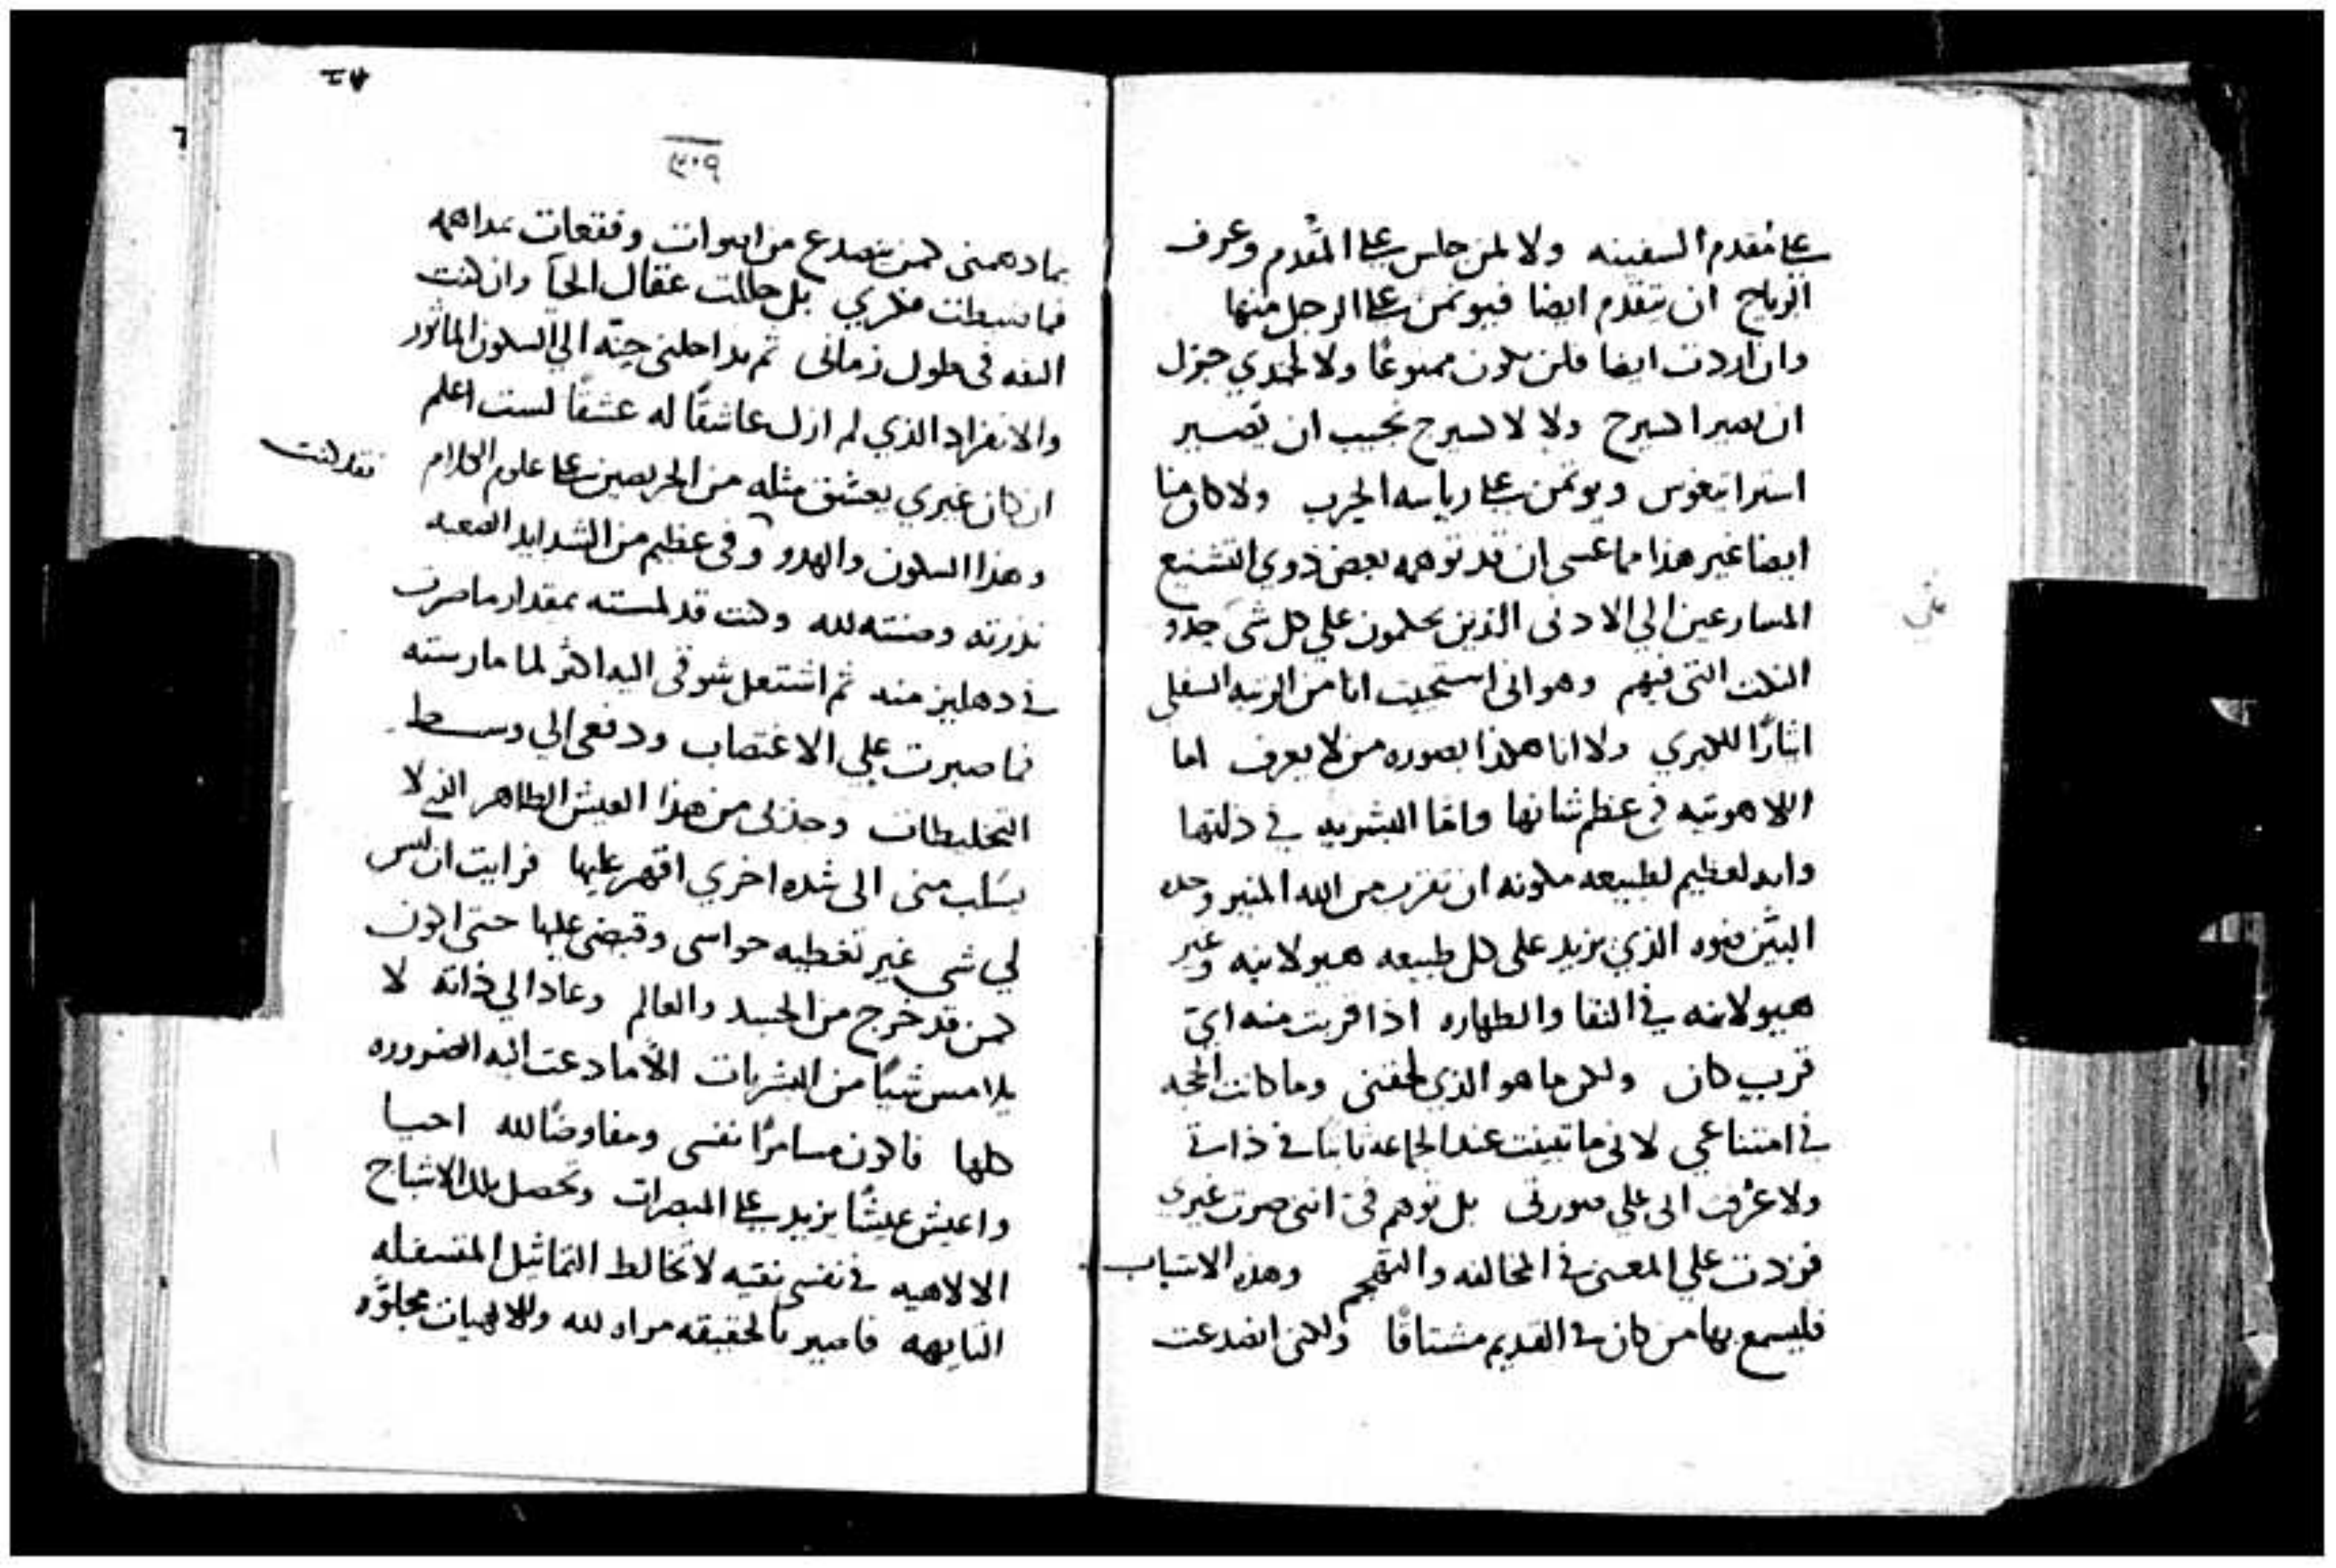 على مقدم السفينه ولا لمن جلس على المقدم وعرف
الرياح ان يتقدم ايضا فيوتمن على الرجل منها
وان اردت ايضا فلن يكون ممنوعًا ولا لجندي جزل
ان يصير اسيرج ولا لاسيرج نجيب ان يصير
استراتيغوس ويوتمن على رياسه الحرب ولا كان منا
ايضا غير هذا مما عسى ان قد توهمه بعض ذوي التشنيع
المسارعين الي الادنى الذين يحكمون علي كل شى حدو
النكت التى فيهم وهو انى استحيت انا من الرتبه السفلي
اثارًا للكبري ولا انا هكذا بصوره من لا يعرف اما
اللاهوتيه في عظم شانها واما البشريه في ذلتها
وانه لعظيم لطبيعه مكونه ان تقرب من الله المنير وحده
البيّن ضوه الذي يزيد على كل طبيعه هيولانيه وغير
هيولانيه في النقا والطهاره اذا قربت منه ايّ
قرب كان ولكن ما هو الذي لحقنى وما كانت الحجه
في امتناعي لانى ما تبينت عند الجماعه ثابتًا في ذاتى
ولا عُرفت انى علي صورتى بل توهم فيّ اننى صرت غيري
فزدت علي المعنى في المخالفه والتقحم وهذه الاسباب
فليسمع بها من كان في القديم مشتاقًا ولكنى انصدعت
٣٠٩
بما دهمنى كمن يتصدع من اصوات وقعقعات تداهمه
فما ضبطت فكري بل حللت عقال الحيآ وان كنت
الفه فى طول زمانى ثم يداخلنى حنّه الي السكون الماثور
والانفراد الذي لم ازل عاشقًا له عشقًا لست اعلم
ان كان غيري يعشق مثله من الحريصين على علوم الكلام
فقد كنت
وهذا السكون والهدو وفى عظيم من الشدايد الصعبه
نذرته وضنته لله وكنت قد لمسته بمقدار ما صرت
في دهليز منه ثم اشتعل شوقى اليه اكثر لما مارسته
فما صبرت علي الاغتصاب ودفعى الي وسط
التخليطات وجذبى من هذا العيش الطاهر الذي لا
يسلب منى الى شده اخري اقهر عليها فرايت ان ليس
لي شى غير تغطيه حواسى وقبضى عليها حتى اكون
كمن قد خرج من الجسد والعالم وعاد الي ذاته لا
يلامس شيًا من البشريات الّا ما دعت اليه الضروره
كلها فاكون مسامرًا نفسى ومفاوضًا لله احيا
واعيش عيشًا يزيد على المبصرات وتحصل تلك الاشباح
الالاهيه في نفسى نقيه لا تخالط التماثيل المتسفله
التايهه فاصير بالحقيقه مراه لله وللالهيات مجلوّه